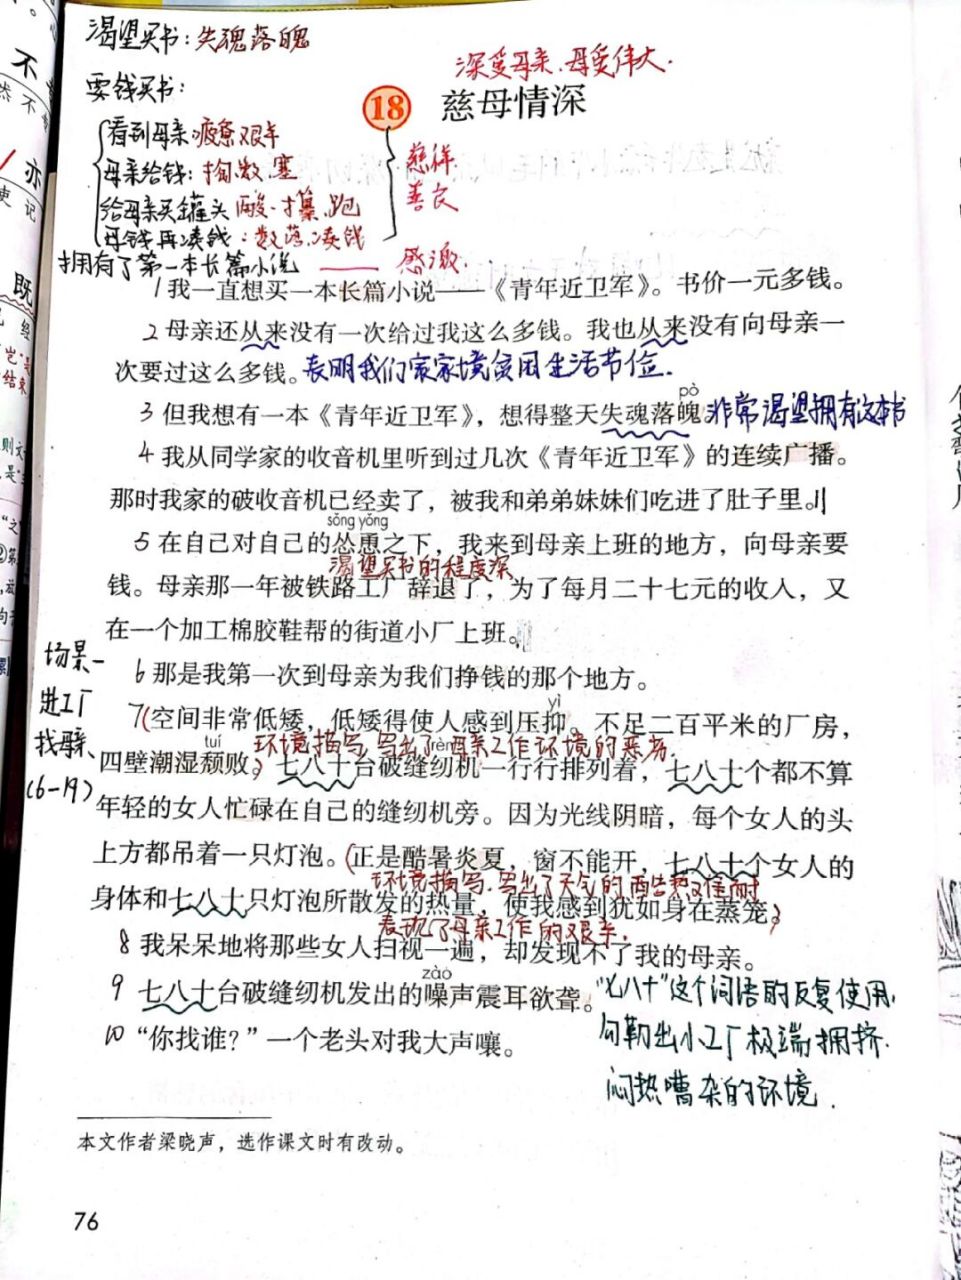 渴望买书:失魂落魄
深爱母亲、母爱伟大.
要钱买书:
18 慈母情深
看到母亲:疲惫艰辛
母亲给钱:掏、数、塞
慈祥
善良
给母亲买罐头
母钱再凑钱:数落、凑钱
拥有了第一本长篇小说——感激.
1我一直想买一本长篇小说——《青年近卫军》。书价一元多钱。
2母亲还从来没有一次给过我这么多钱。我也从来没有向母亲一
次要过这么多钱。表明我们家家境贫困生活节俭.
pò
3但我想有一本《青年近卫军》,想得整天失魂落魄非常渴望拥有这本书
4我从同学家的收音机里听到过几次《青年近卫军》的连续广播。
那时我家的破收音机已经卖了,被我和弟弟妹妹们吃进了肚子里。
sǒng yǒng
5在自己对自己的怂恿之下,我来到母亲上班的地方,向母亲要
渴望买书的程度深
钱。母亲那一年被铁路工厂辞退了,为了每月二十七元的收入,又
在一个加工棉胶鞋帮的街道小厂上班。
场景一
进工厂
找母亲、
(6-19)
6那是我第一次到母亲为我们挣钱的那个地方。
yì
7(空间非常低矮,低矮得使人感到压抑。不足二百平米的厂房,
tuí
环境描写,写出了母亲工作环境的恶劣.
rèn
四壁潮湿颓败。)七八十台破缝纫机一行行排列着,七八十个都不算
年轻的女人忙碌在自己的缝纫机旁。因为光线阴暗,每个女人的头
上方都吊着一只灯泡。(正是酷暑炎夏,窗不能开,七八十个女人的
环境描写.写出了天气的
身体和七八十只灯泡所散发的热量,使我感到犹如身在蒸笼。)
表现了母亲工作的艰辛.
8我呆呆地将那些女人扫视一遍,却发现不了我的母亲。
zào
9七八十台破缝纫机发出的噪声震耳欲聋。
"七八十"这个词语的反复使用.
勾勒出小工厂极端拥挤.
闷热嘈杂的环境.
10“你找谁?”一个老头对我大声嚷。
本文作者梁晓声,选作课文时有改动。
76